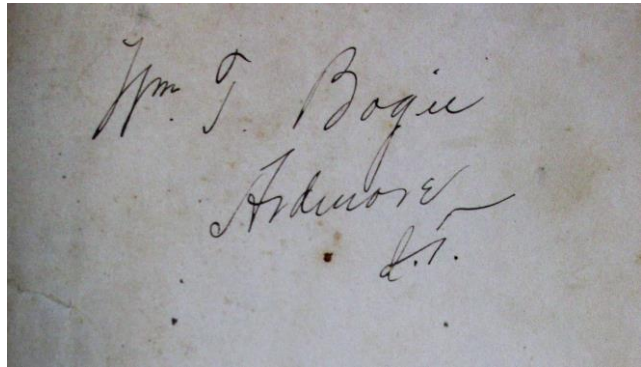 Wm. T. Bogie
Ardmore
I.T.